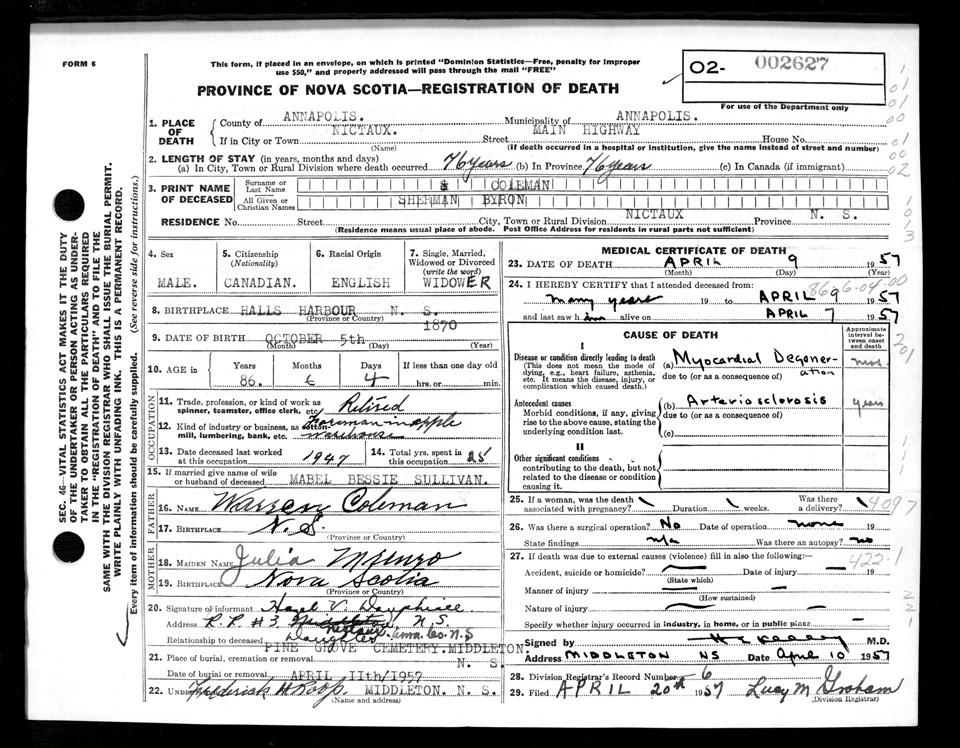 FORM 6
This form, if placed in an envelope, on which is printed "Dominion Statistics—Free, penalty for improper
use $50," and properly addressed will pass through the mail "FREE"
O2- 002627
For use of the Department only
PROVINCE OF NOVA SCOTIA—REGISTRATION OF DEATH
1. PLACE OF DEATH
County of ANNAPOLIS. Municipality of ANNAPOLIS.
If in City or Town NICTAUX. Street MAIN HIGHWAY House No.
(Name) (If death occurred in a hospital or institution, give the name instead of street and number)
2. LENGTH OF STAY (in years, months and days)
(a) In City, Town or Rural Division where death occurred 76 years (b) In Province 76 years (c) In Canada (if immigrant)
3. PRINT NAME OF DECEASED
Surname or Last Name COLEMAN
All Given or Christian Names SHERMAN BYRON
RESIDENCE No. Street City, Town or Rural Division NICTAUX Province N. S.
(Residence means usual place of abode. Post Office Address for residents in rural parts not sufficient)
4. Sex MALE.
5. Citizenship (Nationality) CANADIAN.
6. Racial Origin ENGLISH
7. Single, Married, Widowed or Divorced (write the word) WIDOWER
8. BIRTHPLACE HALLS HARBOUR N. S.
(Province or Country)
9. DATE OF BIRTH OCTOBER 5th 1870
(Month) (Day) (Year)
10. AGE in Years Months Days If less than one day old
86. 6 4 hrs. or min.
OCCUPATION
11. Trade, profession, or kind of work as
spinner, teamster, office clerk, etc. Retired
12. Kind of industry or business, as cotton-
mill, lumbering, bank, etc. Foreman in apple warehouse
13. Date deceased last worked
at this occupation 1947
14. Total yrs. spent in
this occupation 25
15. If married give name of wife
or husband of deceased MABEL BESSIE SULLIVAN.
FATHER
16. NAME Warren Coleman
17. BIRTHPLACE N. S.
(Province or Country)
MOTHER
18. MAIDEN NAME Julia
19. BIRTHPLACE Nova Scotia
(Province or Country)
20. Signature of informant Hazel V. Dauphinee
Address R.R. #3, Middleton, N.S.
Nictaux Anna. Co. N.S
Relationship to deceased Daughter
21. Place of burial, cremation or removal PINE GROVE CEMETERY. MIDDLETON. N. S.
Date of burial or removal APRIL 11th/1957
22. Frederick H Roop MIDDLETON. N. S.
(Name and address)
MEDICAL CERTIFICATE OF DEATH
23. DATE OF DEATH APRIL 9 1957
(Month) (Day) (Year)
24. I HEREBY CERTIFY that I attended deceased from:
many years 19 to APRIL 9 1957
and last saw him alive on APRIL 7 1957
CAUSE OF DEATH
Approximate interval between onset and death
I
Disease or condition directly leading to death
(This does not mean the mode of
dying, e.g., heart failure, asthenia,
etc. It means the disease, injury, or
complication which caused death.)
(a) Myocardial Degeneration
due to (or as a consequence of)
Antecedent causes
Morbid conditions, if any, giving
rise to the above cause, stating the
underlying condition last.
(b) Arteriosclerosis years
due to (or as a consequence of)
(c)
II
Other significant conditions
contributing to the death, but not
related to the disease or condition
causing it.
25. If a woman, was the death
associated with pregnancy? Duration weeks. Was there a delivery?
26. Was there a surgical operation? No Date of operation none 19
State findings n/a Was there an autopsy? no
27. If death was due to external causes (violence) fill in also the following:—
Accident, suicide or homicide? Date of injury 19
(State which)
Manner of injury
(How sustained)
Nature of injury
Specify whether injury occurred in industry, in home, or in public place.
422.1
Signed by M.D.
Address MIDDLETON NS Date April 10 1957
28. Division Registrar's Record Number 6
29. Filed APRIL 20th 1957 Lucy M Graham
(Division Registrar)
SEC. 46—VITAL STATISTICS ACT MAKES IT THE DUTY
OF THE UNDERTAKER OR PERSON ACTING AS UNDER-
TAKER TO OBTAIN ALL THE PARTICULARS REQUIRED
IN THE "REGISTRATION OF DEATH" AND TO FILE THE
SAME WITH THE DIVISION REGISTRAR WHO SHALL ISSUE THE BURIAL PERMIT.
WRITE PLAINLY WITH UNFADING INK. THIS IS A PERMANENT RECORD.
Every item of information should be carefully supplied. (See reverse side for instructions.)